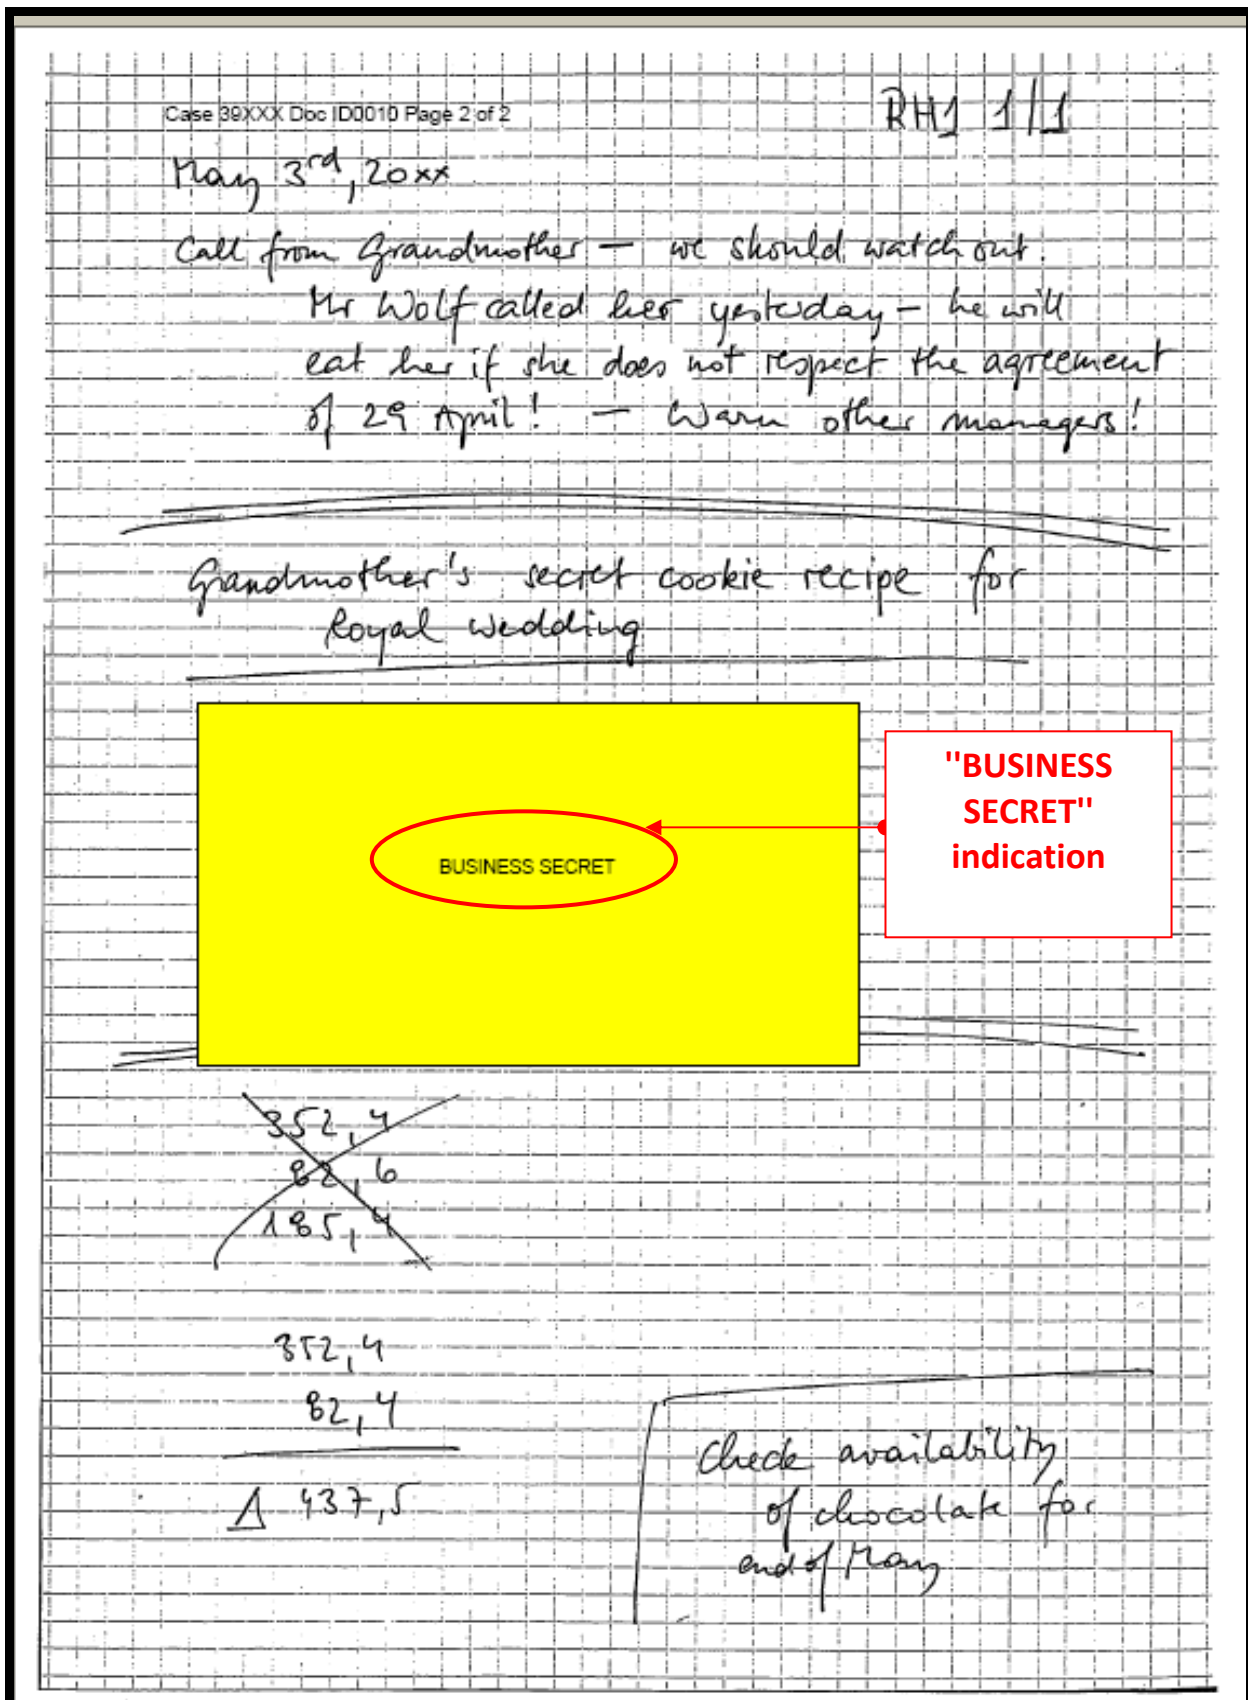 Case 39XXX Doc ID0010 Page 2 of 2
RH1 1/1
May 3rd, 20xx
Call from Grandmother — we should watch out.
Mr Wolf called her yesterday – he will
eat her if she does not respect the agreement
of 29 April! — Warn other managers!
Grandmother's secret cookie recipe for
Royal Wedding
"BUSINESS
SECRET"
indication
BUSINESS SECRET
352,4
82,6
185,4
352,4
82,4
Δ 437,5
Check availability
of chocolate for
end of May